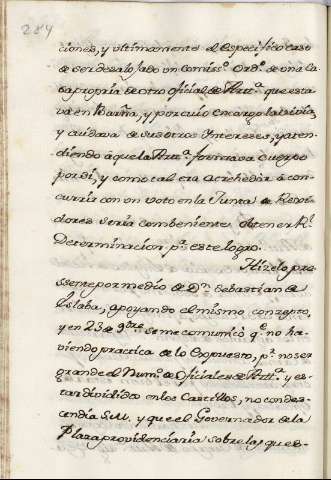 284
ciones, y ultimamente el especifico caso
de ser desalojado un Comiss.º Ord.º de una Ca
sa propria de otro oficial de Artt.ª que esta
va en Barña, y por cuio encargo la vivia,
y cuidava de sus otros Intereses, y aten
diendo à que la Artt.ª formava Cuerpo
por si, y como tal era acrehedòr à con
currir con un voto en la Junta de
dores seria combeniente obtener R.l
Determinacion p.ª este logro.
Hizelo pre
sente por medio de D.n Sebastian de
Eslaba, apoyando el mismo conzepto,
y en 23 de 9bre se me comunicò q.e no ha
viendo practica de lo Expuesto, p.r no ser
grande el Num.º de Oficiales de Artt.ª y es
tar dividida en los Castillos, no condes
cendia S.M. y que el Governador de la
Plaza providenciaria sobre las que es-